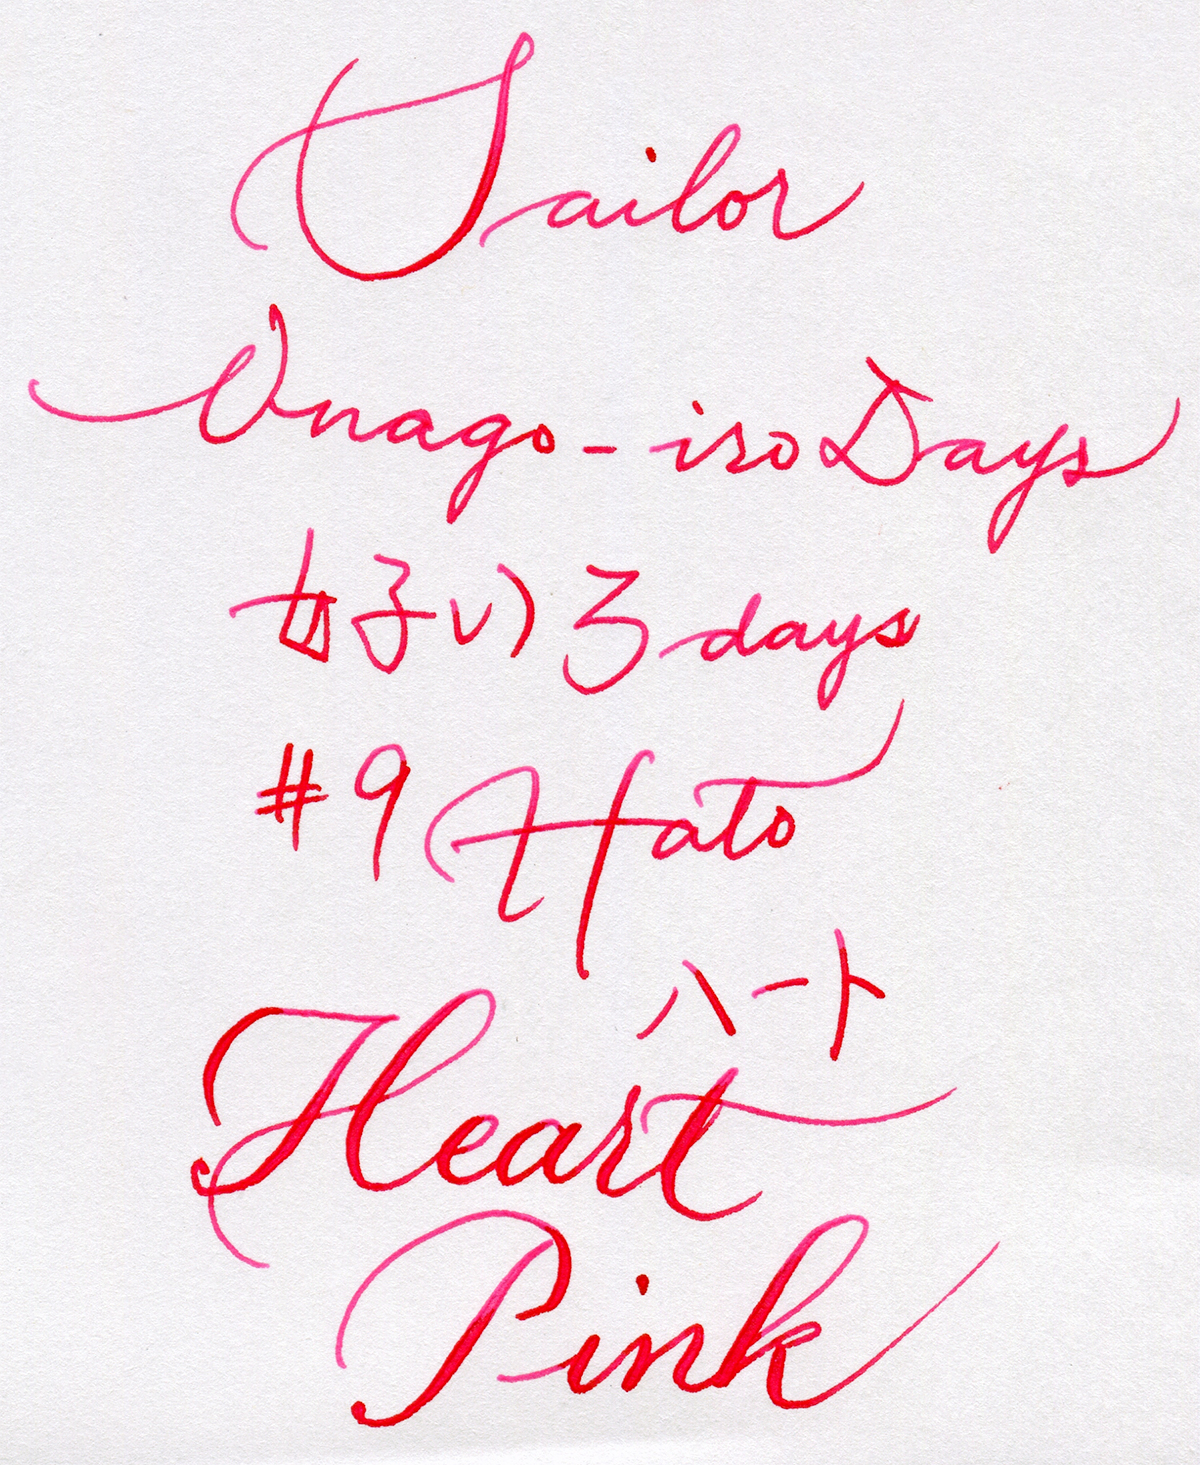 Sailor
Onago-iro Days
女子いろ days
#9 Hato
ハート
Heart
Pink